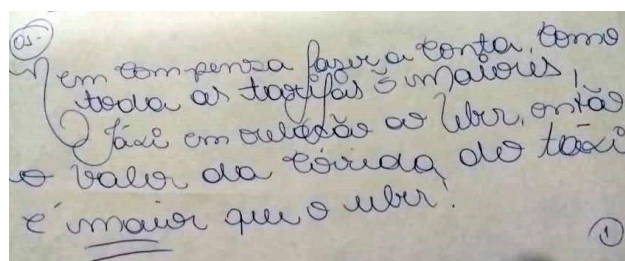 01-
Nem compensa fazer a conta, como
toda as tarifas é maiores,
Táxi em relação ao Uber, então
o valor da córida do táxi
é maior que o uber!
1